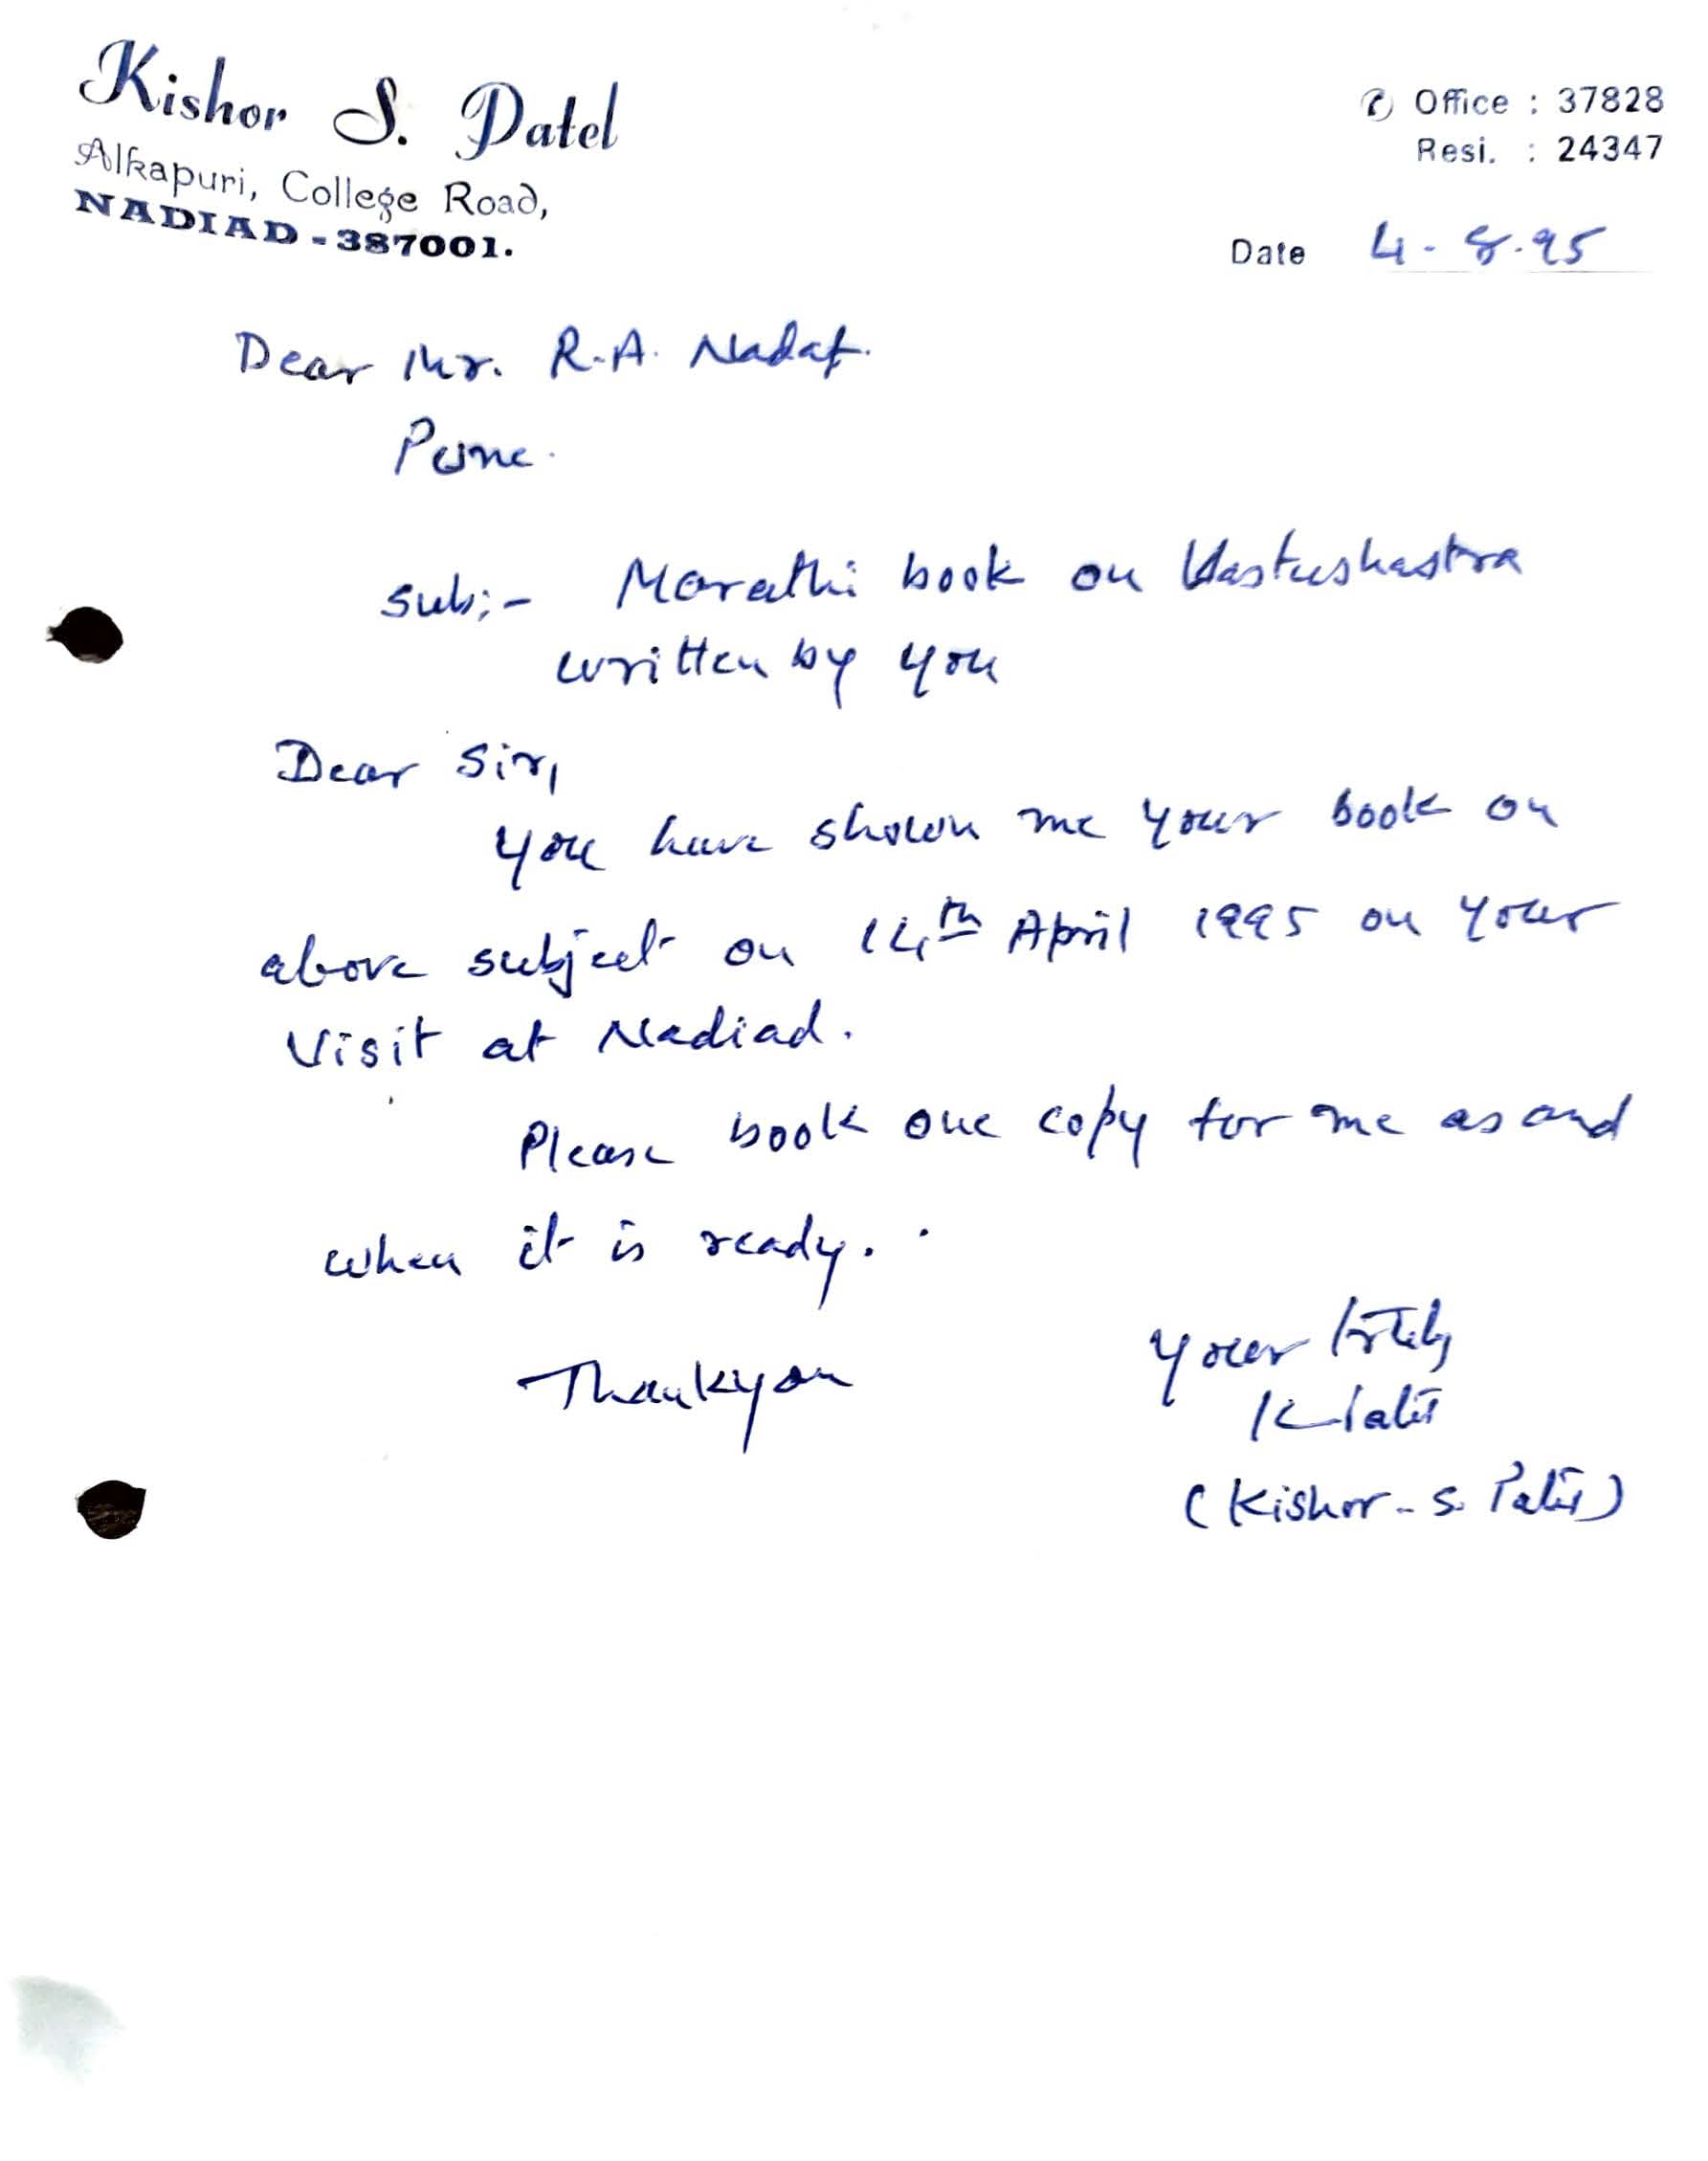 Kishor S. Patel
Alkapuri, College Road,
NADIAD - 387001.
Office : 37828
Resi. : 24347
Date 4-8-95
Dear Mr. R.A. Nadaf.
Pune.
Sub:- Marathi book on Vastushastra
written by you
Dear Sir,
You have shown me your book on
above subject on 14th April 1995 on your
visit at Nadiad.
Please book one copy for me as and
when it is ready.
Thankyou
Your
(Kishor - S. Patel)